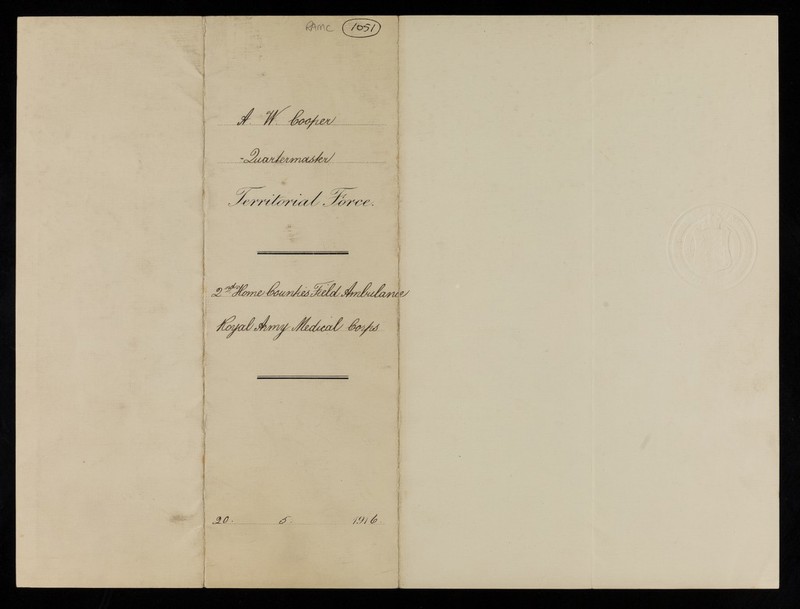 RAMC 1051
A W. Cooper
Quartermaster
Territorial Force.
2nd Home Counties Field Ambulance
Royal Army Medical Corps
20. 5. 1916